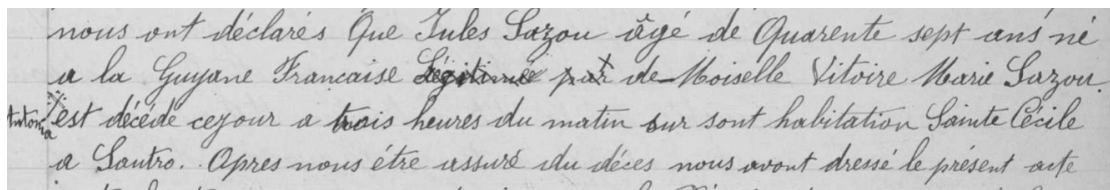 nous ont déclarés Que Jules Sazou âgé de Quarente sept ans né
a la Guyane Francaise Légitimée par de Moiselle Vitoire Marie Sazou.
Antonia est décédé cejour a trois heures du matin sur sont habitation Sainte Cécile
a Sautro. Apres nous être assuré du décès nous avont dressé le présent acte